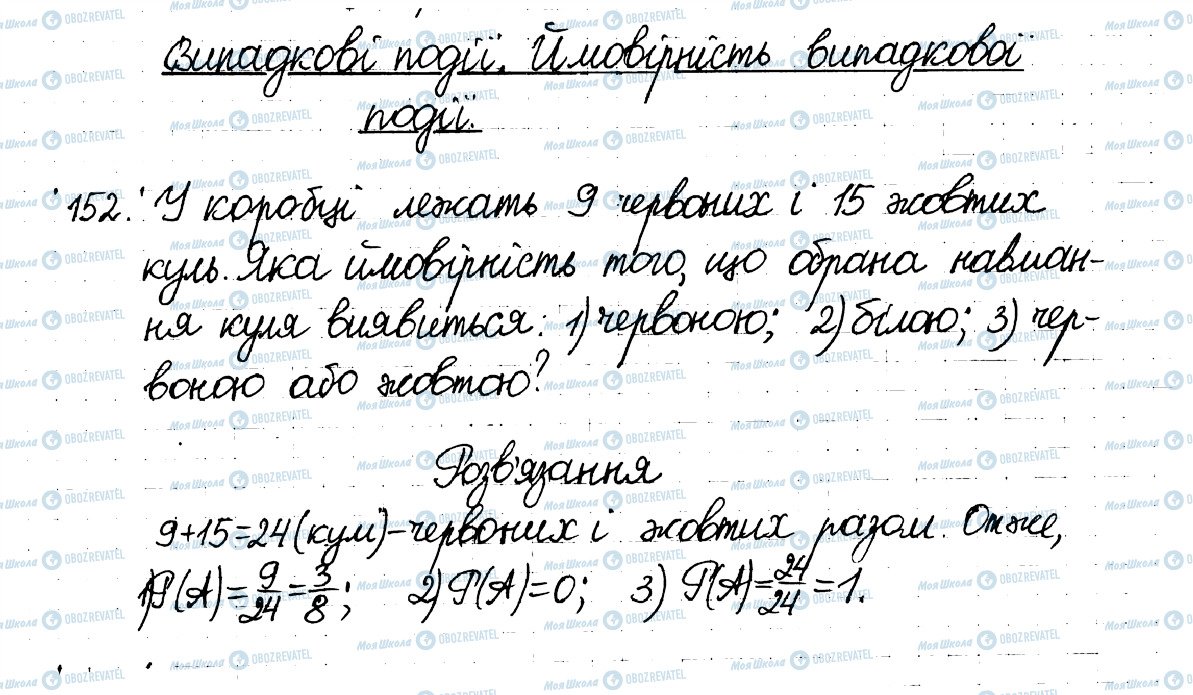 Випадкові події. Ймовірність випадкової
події.
152. У коробці лежать 9 червоних і 15 жовтих
куль. Яка ймовірність того, що обрана навман-
ня куля виявиться: 1) червоною; 2) білою; 3) чер-
воною або жовтою?
Розв'язання
9+15=24 (кулі) - червоних і жовтих разом. Отже,
1) P(A) = 9/24 = 3/8; 2) P(A) = 0; 3) P(A) = 24/24 = 1.
МояШкола OBOZREVATEL